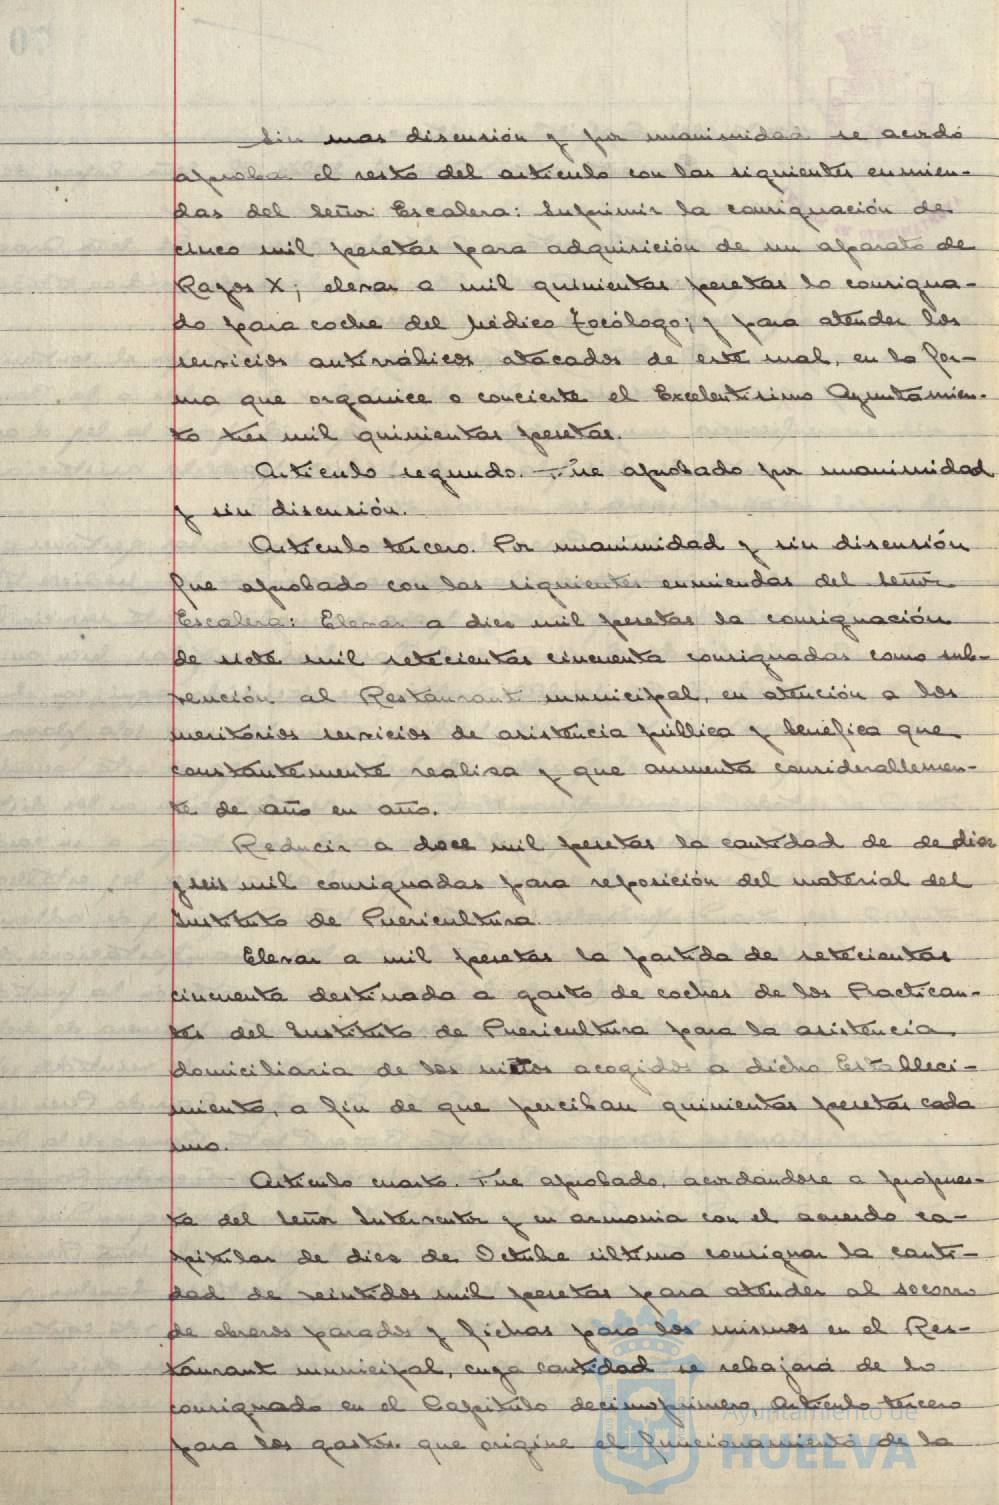 Sin mas discusión y por unanimidad se acordó
aprobar el resto del artículo con las siguientes enmien-
das del Señor Escalera: Suprimir la consignación de
cinco mil pesetas para adquisición de un aparato de
Rayos X; elevar a mil quinientas pesetas lo consigna-
do para coche del Médico Tocólogo; y para atender los
servicios antirrábicos atacados de este mal, en la for-
ma que organice o concierte el Excelentísimo Ayuntamien-
to tres mil quinientas pesetas.
Artículo segundo. Fue aprobado por unanimidad
y sin discusión.
Artículo tercero. Por unanimidad y sin discusión
fue aprobado con las siguientes enmiendas del Señor
Escalera: Elevar a diez mil pesetas la consignación
de siete mil setecientas cincuenta consignadas como sub-
vención al Restaurant municipal, en atención a los
meritorios servicios de asistencia pública y benéfica que
constantemente realiza y que aumenta considerablemen-
te de año en año.
Reducir a doce mil pesetas la cantidad de de diez
y seis mil consignadas para reposición del material del
Instituto de Puericultura.
Elevar a mil pesetas la partida de setecientas
cincuenta destinada a gasto de coches de los Practican-
tes del Instituto de Puericultura para la asistencia
domiciliaria de los niños acogidos a dicho Estableci-
miento, a fin de que perciban quinientas pesetas cada
uno.
Artículo cuarto. Fue aprobado, acordandose a propues-
ta del Señor Interventor y en armonia con el acuerdo ca-
pitular de diez de Octubre último consignar la canti-
dad de veintidos mil pesetas para atender al socorro
de obreros parados y fichas para los mismos en el Res-
taurant municipal, cuya cantidad se rebajará de lo
consignado en el Capítulo decimoprimero, Artículo tercero
para los gastos que origine el funcionamiento de la
Ayuntamiento de
HUELVA